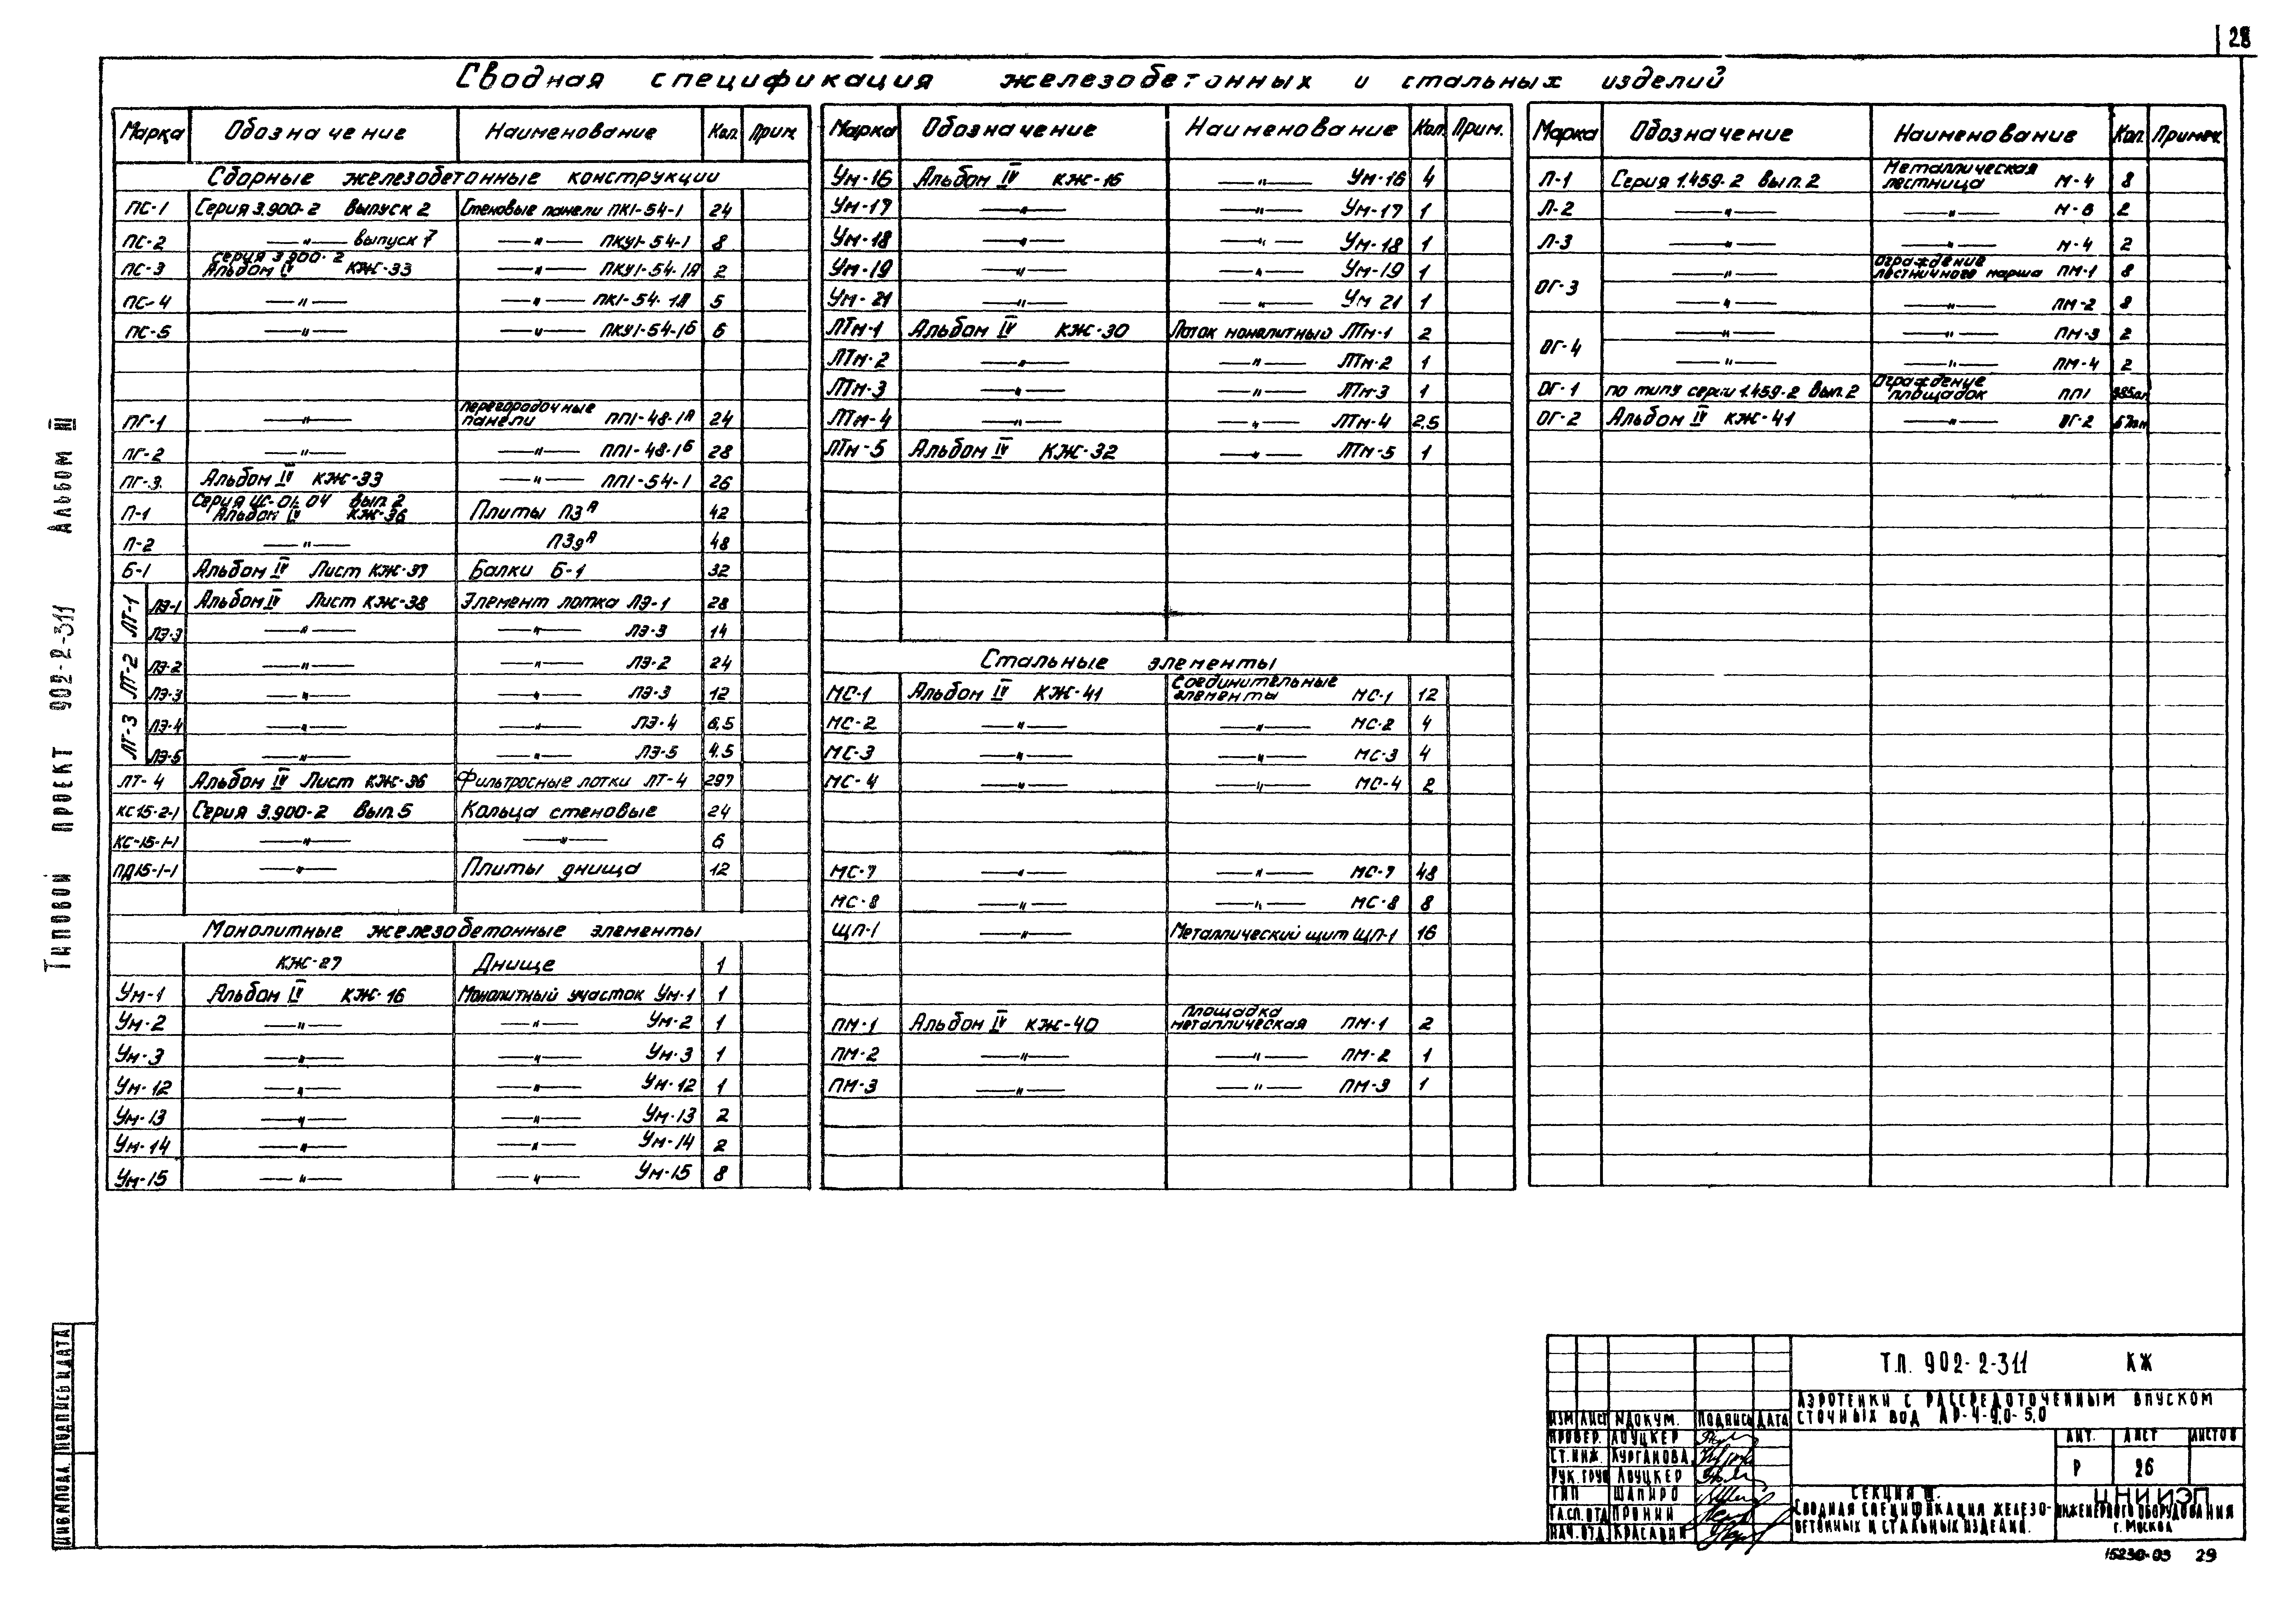 28
Сводная спецификация железобетонных и стальных изделий
Марка Обозначение Наименование Кол. Прим.
Сборные железобетонные конструкции
ПС-1 Серия 3.900-2 выпуск 2 Стеновые панели ПК1-54-1 24
ПС-2 —"— выпуск 7 —"— ПКУ1-54-1 8
ПС-3 Серия 3.900-2 Альбом IV КЖ-33 —"— ПКУ1-54-1А 2
ПС-4 —"— —"— ПК1-54-1А 5
ПС-5 —"— —"— ПКУ1-54-1б 6
ПГ-1 —"— Перегородочные панели ПП1-48-1А 24
ПГ-2 —"— —"— ПП1-48-1б 28
ПГ-3. Альбом IV КЖ-33 —"— ПП1-54-1 26
П-1 Серия ИС-01-04 вып. 2 Альбом IV КЖ-36 Плиты П3А 42
П-2 —"— П3gА 48
Б-1 Альбом IV Лист КЖ-37 Балки Б-1 32
ЛТ-1 ЛЭ-1 Альбом IV Лист КЖ-38 Элемент лотка ЛЭ-1 28
ЛЭ-3 —"— —"— ЛЭ-3 14
ЛТ-2 ЛЭ-2 —"— —"— ЛЭ-2 24
ЛЭ-3 —"— —"— ЛЭ-3 12
ЛТ-3 ЛЭ-4 —"— —"— ЛЭ-4 6,5
ЛЭ-5 —"— —"— ЛЭ-5 4.5
ЛТ-4 Альбом IV Лист КЖ-36 Фильтросные лотки ЛТ-4 297
КС15-2-1 Серия 3.900-2 Вып. 5 Кольца стеновые 24
КС-15-1-1 —"— —"— 6
ПД15-1-1 —"— Плиты днища 12
Монолитные железобетонные элементы
КЖ-27 Днище 1
Ум-1 Альбом IV КЖ-16 Монолитный участок Ум-1 1
Ум-2 —"— —"— Ум-2 1
Ум-3 —"— —"— Ум-3 1
Ум-12 —"— —"— Ум-12 1
Ум-13 —"— —"— Ум-13 2
Ум-14 —"— —"— Ум-14 2
Ум-15 —"— —"— Ум-15 8
Марка Обозначение Наименование Кол. Прим.
Ум-16 Альбом IV КЖ-16 —"— Ум-16 4
Ум-17 —"— —"— Ум-17 1
Ум-18 —"— —"— Ум-18 1
Ум-19 —"— —"— Ум-19 1
Ум-21 —"— —"— Ум 21 1
ЛТм-1 Альбом IV КЖ-30 Лоток монолитный ЛТм-1 2
ЛТм-2 —"— —"— ЛТм-2 1
ЛТм-3 —"— —"— ЛТм-3 1
ЛТм-4 —"— —"— ЛТм-4 2.5
ЛТм-5 Альбом IV КЖ-32 —"— ЛТм-5 1
Стальные элементы
МС-1 Альбом IV КЖ-41 Соединительные элементы МС-1 12
МС-2 —"— —"— МС-2 4
МС-3 —"— —"— МС-3 4
МС-4 —"— —"— МС-4 2
МС-7 —"— —"— МС-7 48
МС-8 —"— —"— МС-8 8
ЩП-1 —"— Металлический щит ЩП-1 16
ПМ-1 Альбом IV КЖ-40 Площадка металлическая ПМ-1 2
ПМ-2 —"— —"— ПМ-2 1
ПМ-3 —"— —"— ПМ-3 1
Марка Обозначение Наименование Кол. Примеч.
Л-1 Серия 1.459-2 Вып. 2 Металлическая лестница М-4 8
Л-2 —"— —"— М-6 2
Л-3 —"— —"— М-4 2
ОГ-3 —"— Ограждение лестничного марша ПМ-1 8
—"— —"— ПМ-2 8
ОГ-4 —"— ПМ-3 2
—"— —"— ПМ-4 2
ОГ-1 по типу серии 1.459-2 Вып. 2 Ограждение площадок ПП1
ОГ-2 Альбом IV КЖ-41 —"— ОГ-2
Типовой проект 902-2-311 Альбом III
Инв.№подл. Подпись и дата
Т.П. 902-2-311 КЖ
Аэротенки с рассредоточенным впуском
сточных вод АР-4-9,0-5,0
Изм Лист №докум. Подпись Дата
Провер. Лоуцкер
Ст.инж. Курганова
Рук.груп Лоуцкер
ГИП Шапиро
Гл.сп.отд Пронин
Нач.отд. Красавин
Лит. Лист Листов
Р 26
Секция III.
Сводная спецификация железо-
бетонных и стальных изделий.
ЦНИИЭП
инженерного оборудования
г. Москва
15230-03 29